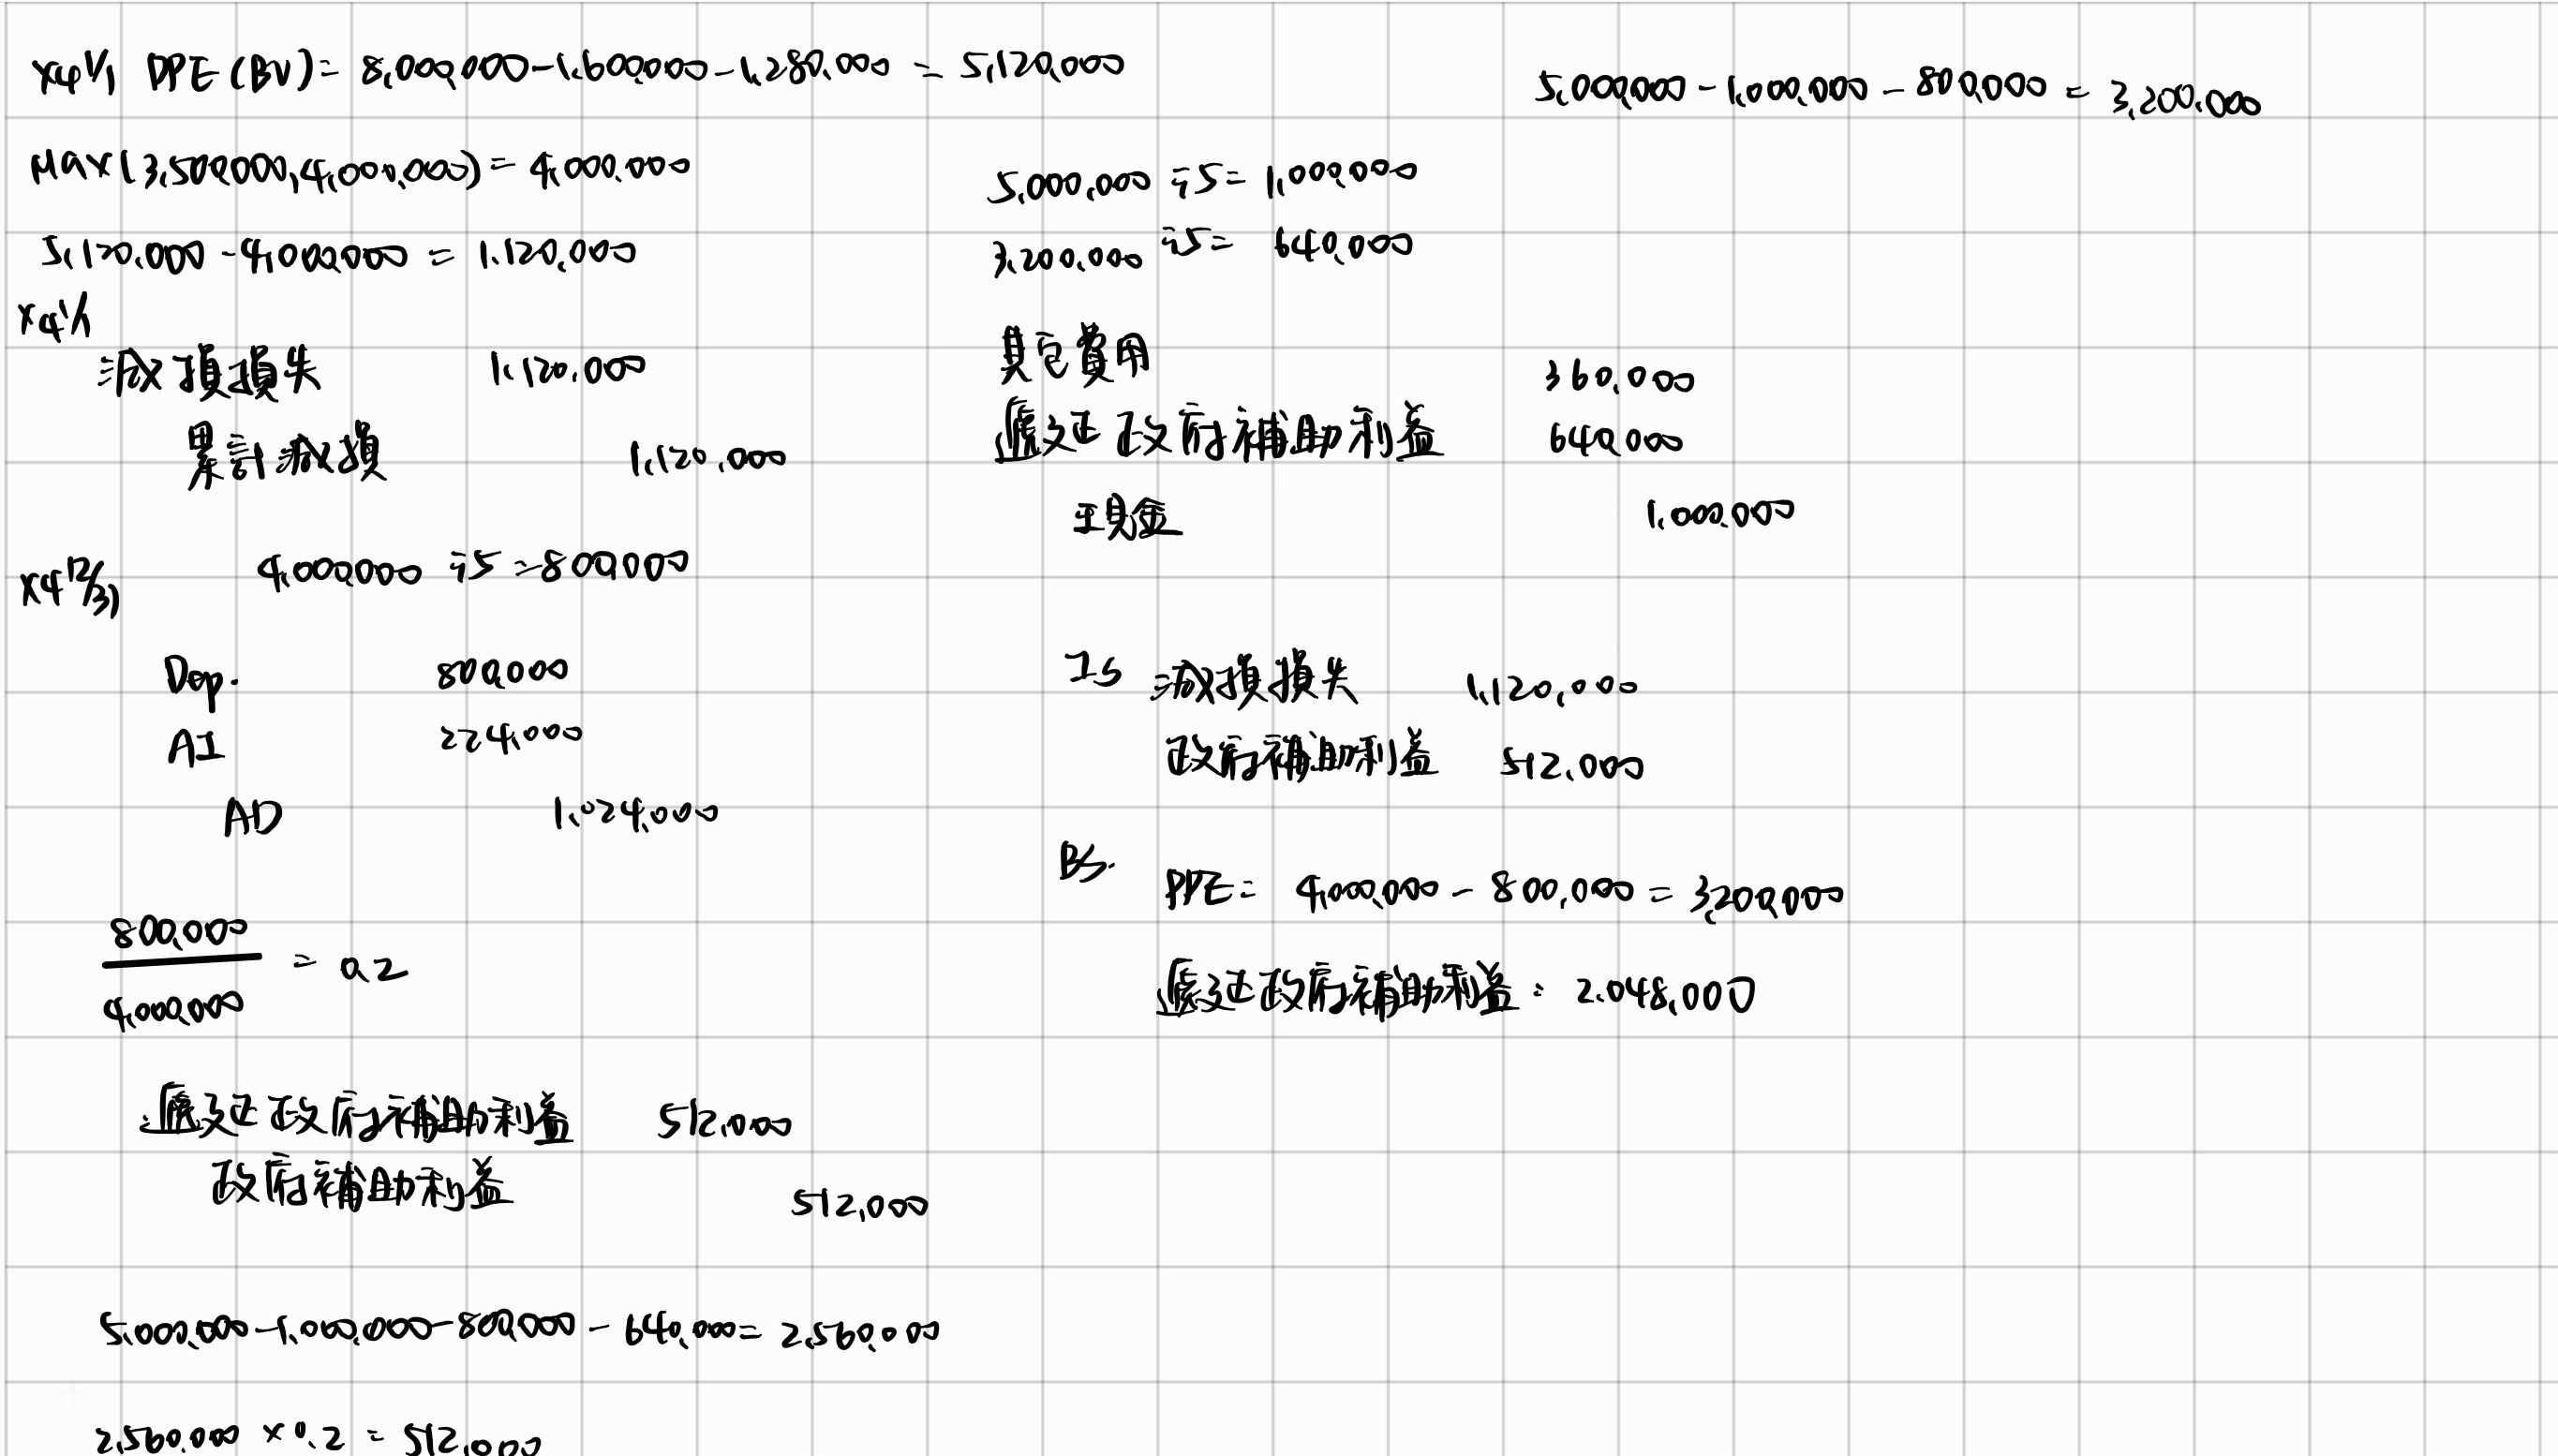 X4 1/1 PPE (BV) = 8,000,000 - 1,600,000 - 1,280,000 = 5,120,000
Max(3,500,000, 4,000,000) = 4,000,000
5,120,000 - 4,000,000 = 1,120,000
X4 1/1
減損損失 1,120,000
累計減損 1,120,000
X4 12/31 4,000,000 ÷ 5 = 800,000
Dep. 800,000
AI 224,000
AD 1,024,000
800,000
4,000,000
= 0.2
遞延政府補助利益 512,000
政府補助利益 512,000
5,000,000 - 1,000,000 - 800,000 - 640,000 = 2,560,000
2,560,000 × 0.2 = 512,000
5,000,000 - 1,000,000 - 800,000 = 3,200,000
5,000,000 ÷ 5 = 1,000,000
3,200,000 ÷ 5 = 640,000
其它費用 360,000
遞延政府補助利益 640,000
現金 1,000,000
IS 減損損失 1,120,000
政府補助利益 512,000
BS.
PPE = 4,000,000 - 800,000 = 3,200,000
遞延政府補助利益 : 2,048,000